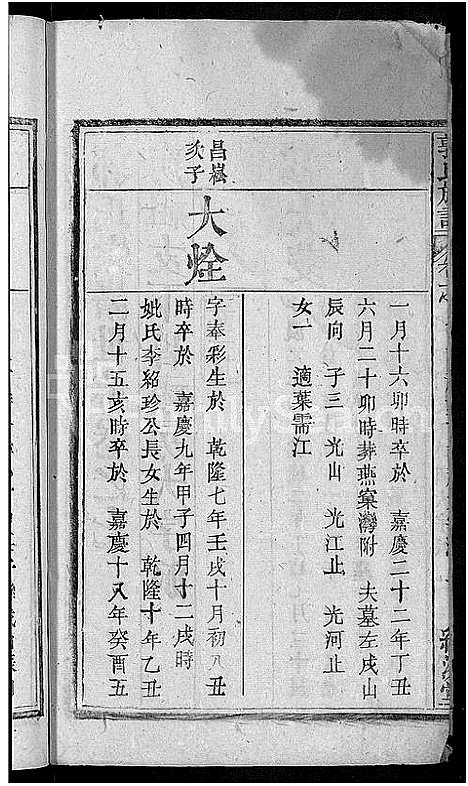 郭氏族譜
一月十六卯時卒於 嘉慶二十二年丁丑
六月二十卯時葬燕窠灣附 夫墓左戌山
辰向 子三 光山 光江止 光河止
女一 適葉需江
昌崧
次子
大烇
字奉彩生於 乾隆七年壬戌十月初八丑
時卒於 嘉慶九年甲子四月十二戌時
妣氏李紹珍公長女生於 乾隆十年乙丑
二月十五亥時卒於 嘉慶十八年癸酉五